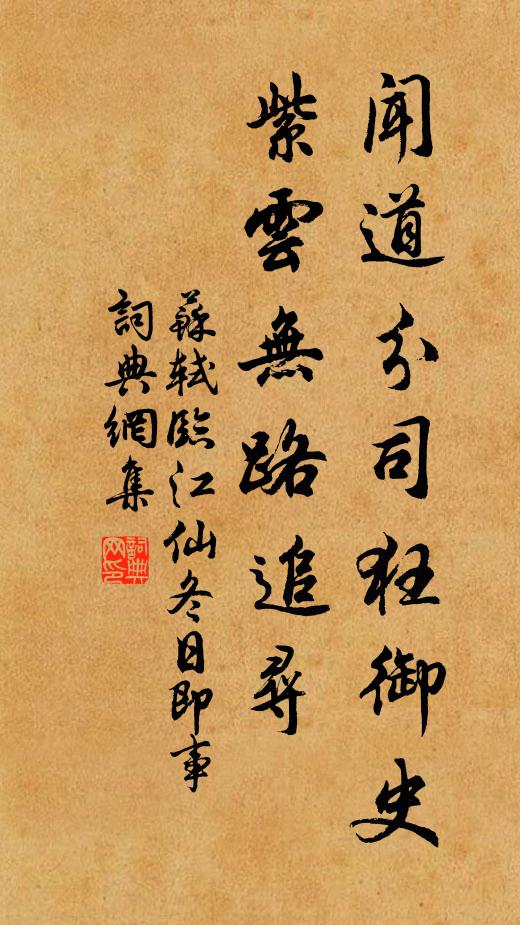 聞道分司狂御史
紫雲無路追尋
蘇軾臨江仙冬日即事
詞典網集
詞典網印